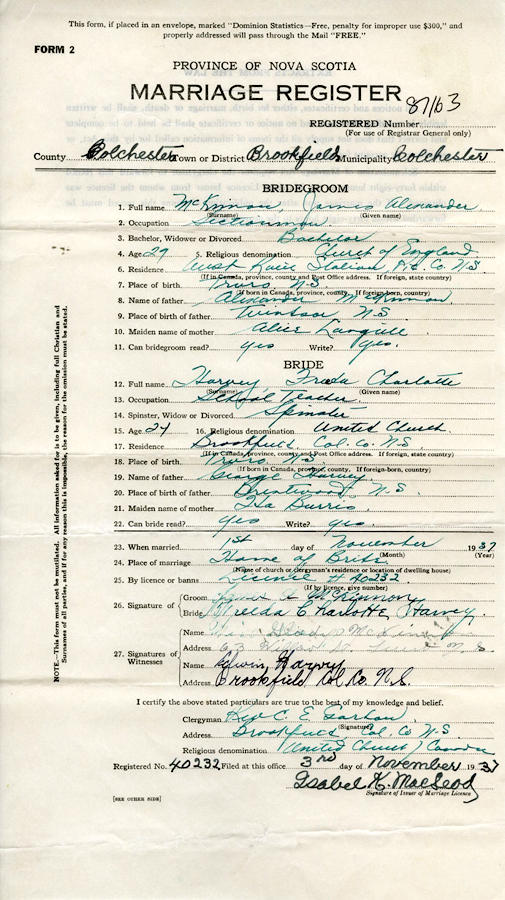 This form, if placed in an envelope, marked "Dominion Statistics—Free, penalty for improper use $300," and
properly addressed will pass through the Mail "FREE."
FORM 2
PROVINCE OF NOVA SCOTIA
MARRIAGE REGISTER
REGISTERED Number
(For use of Registrar General only)
County Colchester Town or District Brookfield Municipality Colchester
BRIDEGROOM
1. Full name McKinnon, James Alexander
(Surname) (Given name)
2. Occupation Sectionman
3. Bachelor, Widower or Divorced Bachelor
4. Age 29 5. Religious denomination Church of England
6. Residence Co. N.S
(If in Canada, province, county and Post Office address. If foreign, state country)
7. Place of birth Truro, N.S.
(If born in Canada, province, county. If foreign-born, country)
8. Name of father Alexander McKinnon
9. Place of birth of father Windsor N.S
10. Maiden name of mother Alice Langille
11. Can bridegroom read? yes Write? yes.
BRIDE
12. Full name Harvey Freda Charlotte
(Surname) (Given name)
13. Occupation School Teacher
14. Spinster, Widow or Divorced Spinster
15. Age 24 16. Religious denomination United Church
17. Residence Brookfield, Col. Co. N.S
(If in Canada, province, county and Post Office address. If foreign, state country)
18. Place of birth Truro, N.S.
(If born in Canada, province, county. If foreign-born, country)
19. Name of father George Harvey
20. Place of birth of father Brentwood N.S
21. Maiden name of mother Ida Burris
22. Can bride read? yes Write? yes
23. When married 1st day of November 1937
(Month) (Year)
24. Place of marriage Home of Bride
(Name of church or clergyman's residence or location of dwelling house)
25. By licence or banns License # 40232
(If by licence, give number)
26. Signature of
Groom James A McKinnon
Bride Charlotte Harvey
27. Signatures of Witnesses
Name Gladys
Address N.S.
Name Edwin Harvey
Address Brookfield Col Co. N.S.
I certify the above stated particulars are true to the best of my knowledge and belief.
Clergyman Rev C. E.
(Signature)
Address Brookfield, Col. Co N.S
Religious denomination United Church / Canada
Registered No. 40232 Filed at this office 3rd day of November 1937
Isabel K. MacLeod
Signature of Issuer of Marriage Licence
[SEE OTHER SIDE]
NOTE—This form must not be mutilated. All information asked for is to be given, including full Christian and
Surnames of all parties, and if for any reason this is impossible, the reason for the omission must be stated.